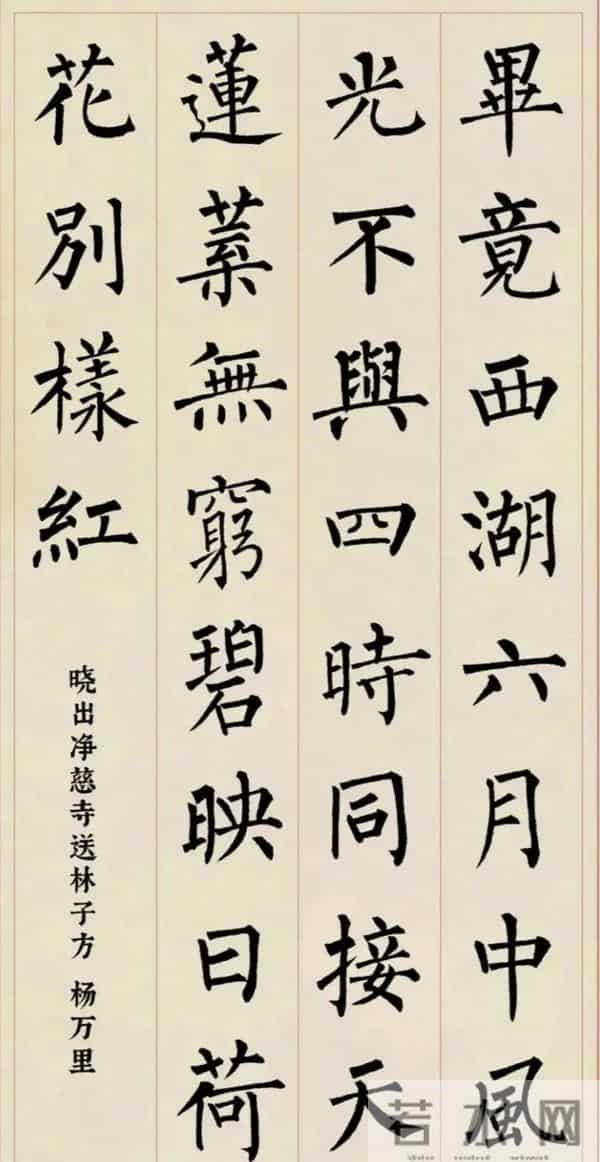 畢竟西湖六月中風
光不與四時同接天
蓮葉無窮碧映日荷
花別樣紅
晓出净慈寺送林子方 杨万里